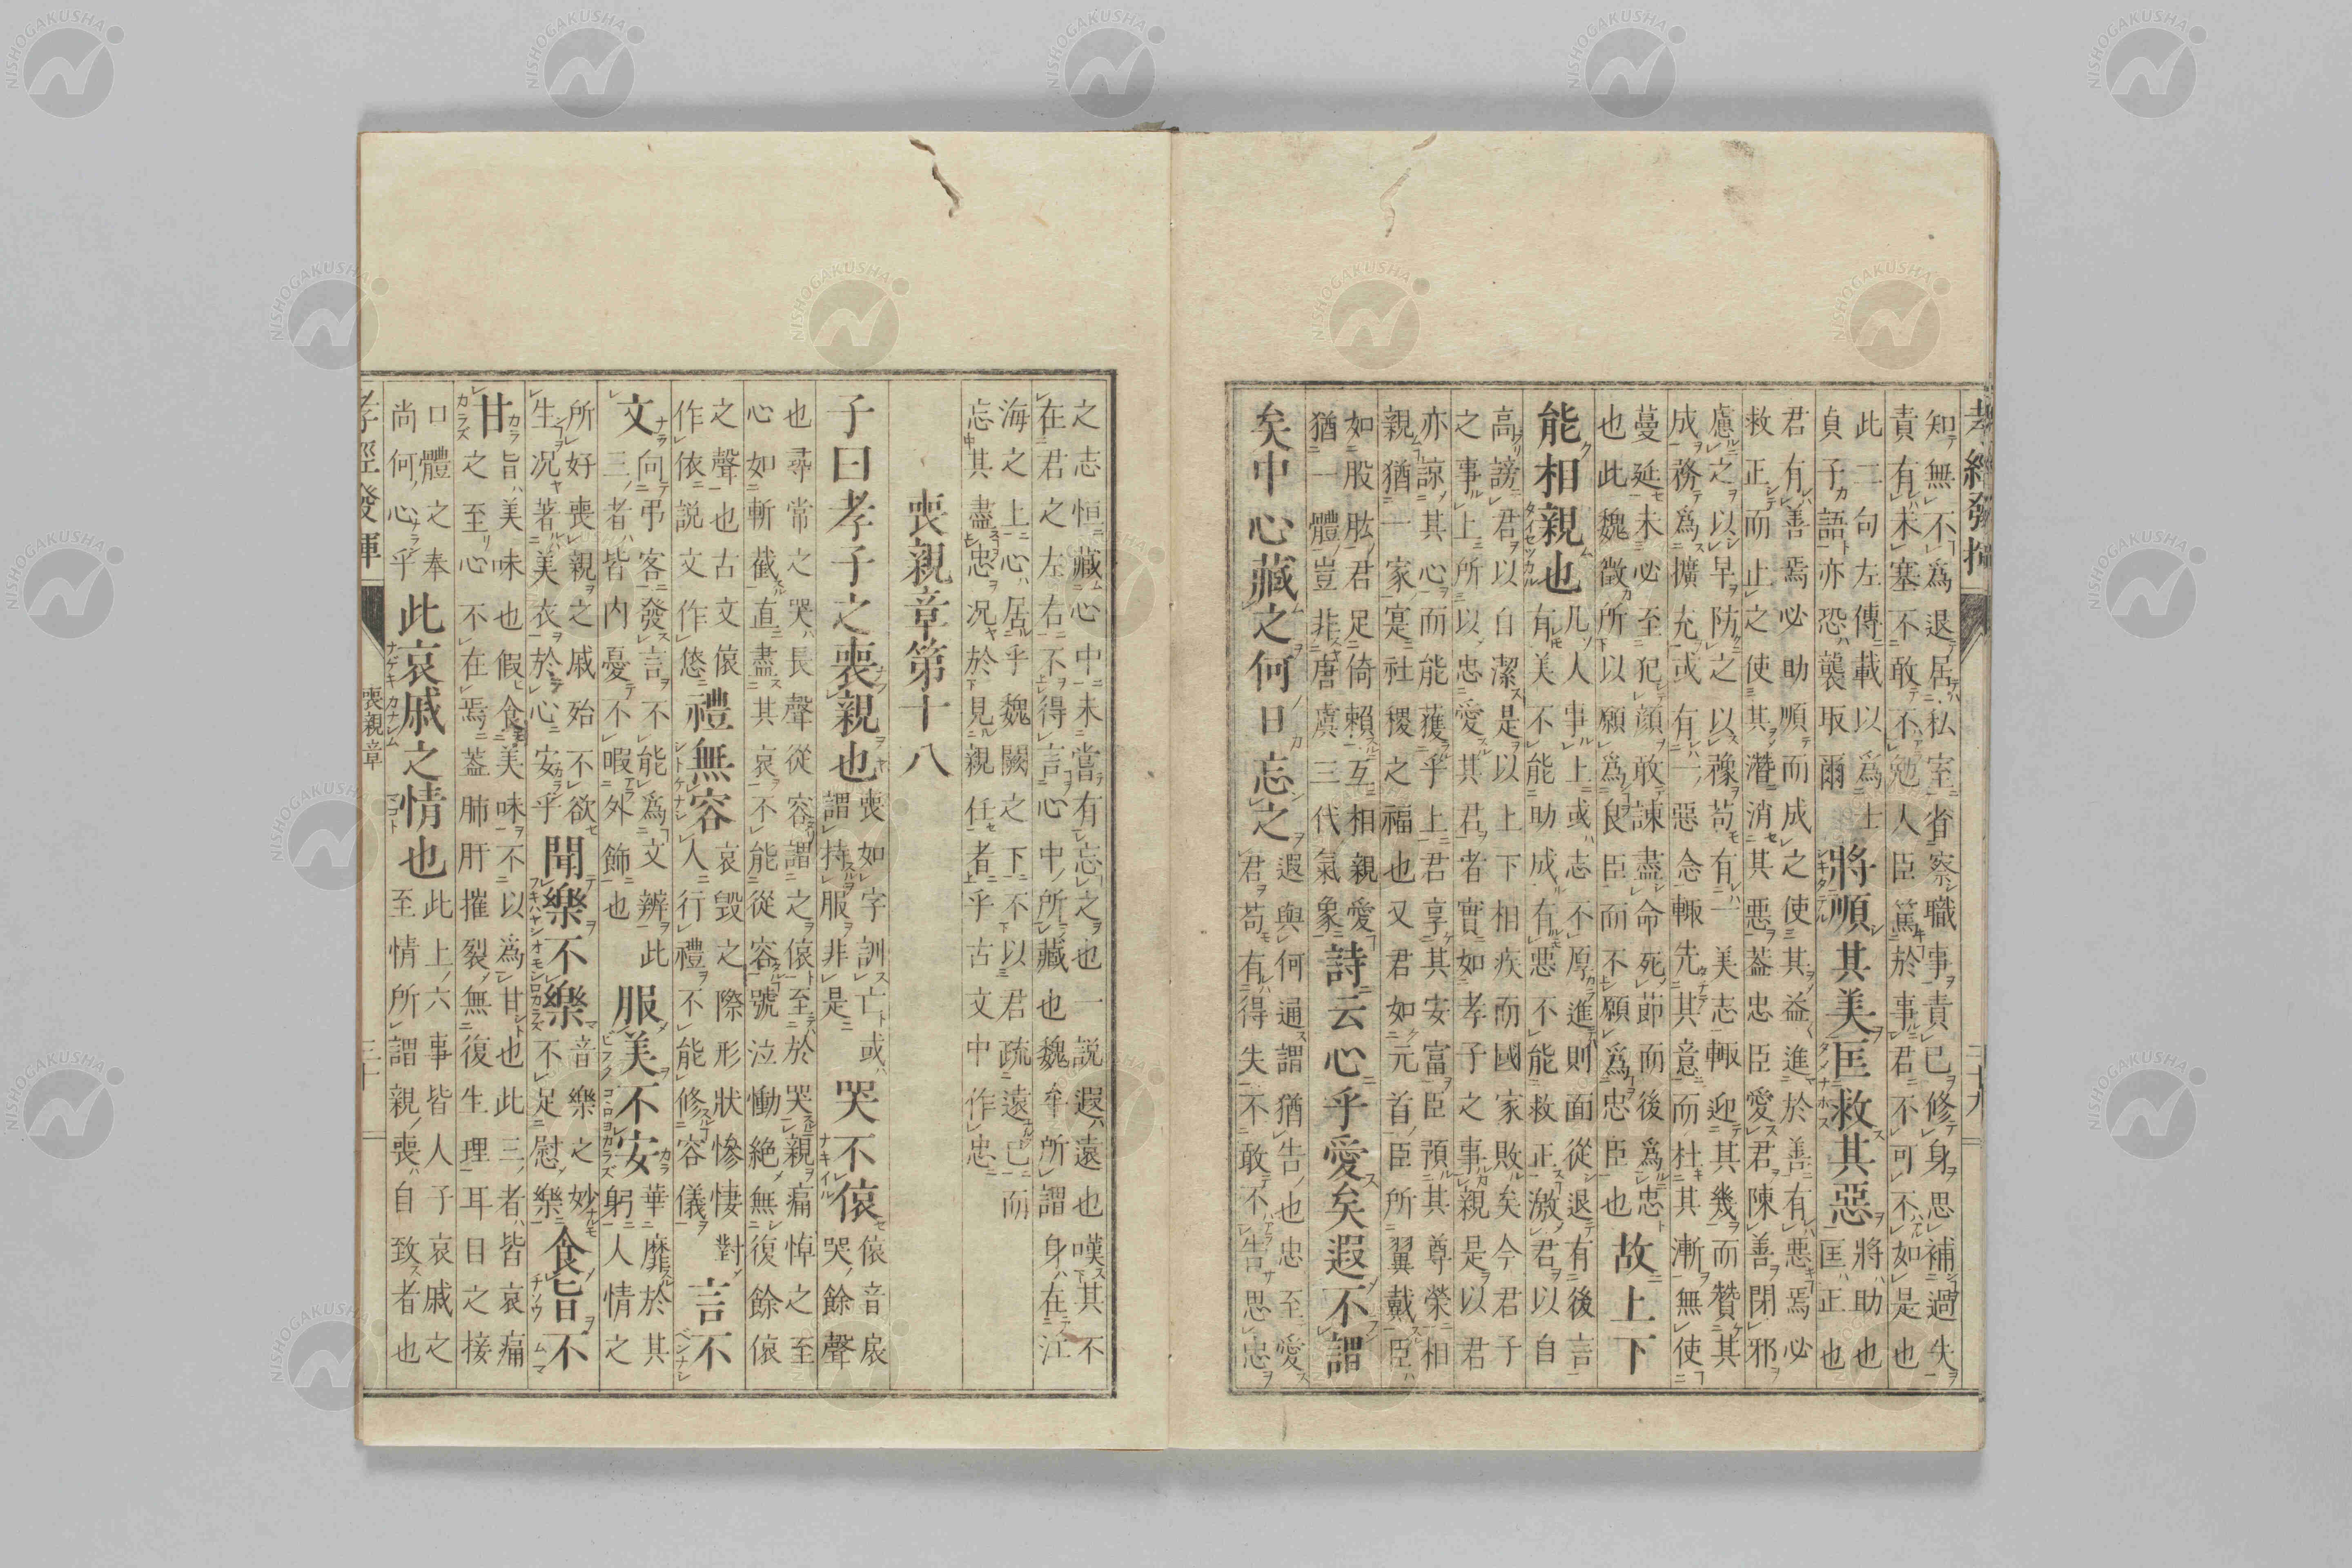 孝經發揮
二十九
知無不爲退居私室省察職事責已修身思補過失
責有未塞不敢不勉人臣篤於事君不可不如是也
此二句左傳載以爲士
貞子語亦恐襲取爾
將順其美匡救其惡
將助也
匡正也
君有善焉必助順而成之使其益進於善有惡焉必
救正而止之使其潛消其惡葢忠臣愛君陳善閉邪
慮之以早防之以豫苟有一美志輙迎其幾而贊其
成務爲擴充或有一惡念輙先其意而杜其漸無使
蔓延未必至犯顏敢諫盡命死節而後爲忠
也此魏徵所以願爲良臣而不願爲忠臣也
故上下
能相親也
凡人事上或志不原進則面從退有後言
有美不能助成有惡不能救正激君以自
高謗君以自潔是以上下相疾而國家敗矣今君子
之事上所以忠愛其君者實如孝子之事親是以君
亦諒其心而能獲乎上君享其安富臣預其尊榮相
親猶一家寔社稷之福也又君如元首臣所翼戴臣
如股肱君足倚賴互相親愛
猶一體豈非唐虞三代氣象
詩云心乎愛矣遐不謂
矣中心藏之何日忘之
遐與何通謂猶告也忠至愛
君苟有得失不敢不告思忠
之志恒藏心中未嘗有忘之也一說遐遠也嘆其不
在君之左右不得言心中所藏也魏牟所謂身在江
海之上心居乎魏闕之下不以君疏遠已而
忘其盡忠况於見親任者乎古文中作忠
喪親章第十八
子曰孝子之喪親也
喪如字訓亡或
謂持服非是
哭不偯
偯音扆
哭餘聲
也尋常之哭長聲從容謂之偯至於哭親痛悼之至
心如斬截直盡其哀不能從容號泣慟絕無復餘偯
之聲也古文偯
作依說文作㥋
禮無容
哀毀之際形狀慘悽對
人行禮不能修容儀
言不
文
向弔客發言不能爲文辨此
三者皆内憂不暇外飾也
服美不安
華靡於其
躬人情之
所好喪親之戚殆不欲
生况著美衣於心安乎
聞樂不樂
音樂之妙
不足慰樂
食旨不
甘
旨美味也假食美味不以爲甘也此三者皆哀痛
之至心不在焉葢肺肝摧裂無復生理耳目之接
口體之奉
尚何心乎
此哀戚之情也
此上六事皆人子哀戚之
至情所謂親喪自致者也
孝經發揮
喪親章
三十